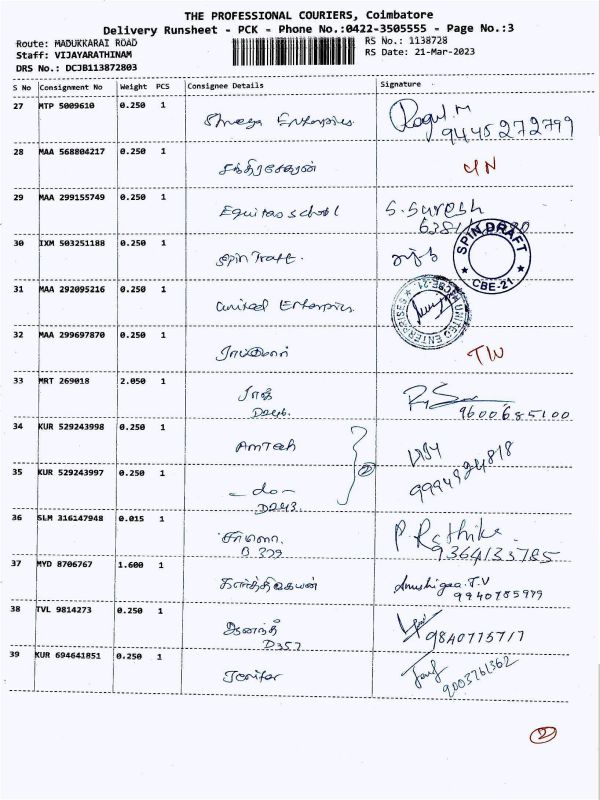 THE PROFESSIONAL COURIERS, Coimbatore
Delivery Runsheet - PCK - Phone No.:0422-3505555 - Page No.:3
Route: MADUKKARAI ROAD
RS No.: 1138728
Staff: VIJAYARATHINAM
RS Date: 21-Mar-2023
DRS No.: DCJB113872803
S No Consignment No Weight PCS Consignee Details Signature
27 MTP 5009610 0.250 1
Enterprises Ragul.M
9445272799
28 MAA 568804217 0.250 1
சந்திரசேகரன்
29 MAA 299155749 0.250 1
Equitas school S. Suresh
30 IXM 503251188 0.250 1
SPIN DRAFT
CBE-21
31 MAA 292095216 0.250 1
united Enterprises
UNITED ENTERPRISES CBE-21
32 MAA 299697870 0.250 1
33 MRT 269018 2.050 1
ராஜ்
9600685100
34 KUR 529243998 0.250 1
AmTech
35 KUR 529243997 0.250 1
-do-
9994924818
36 SLM 316147948 0.015 1
P. Rathika
B 379
9364133785
37 MYD 8706767 1.600 1
கார்த்திகேயன் Anushigaa.T.V
9940785979
38 TVL 9814273 0.250 1
ஆனந்த்
D357 9840715717
39 KUR 694641851 0.250 1
Jenifer
9003761362
2